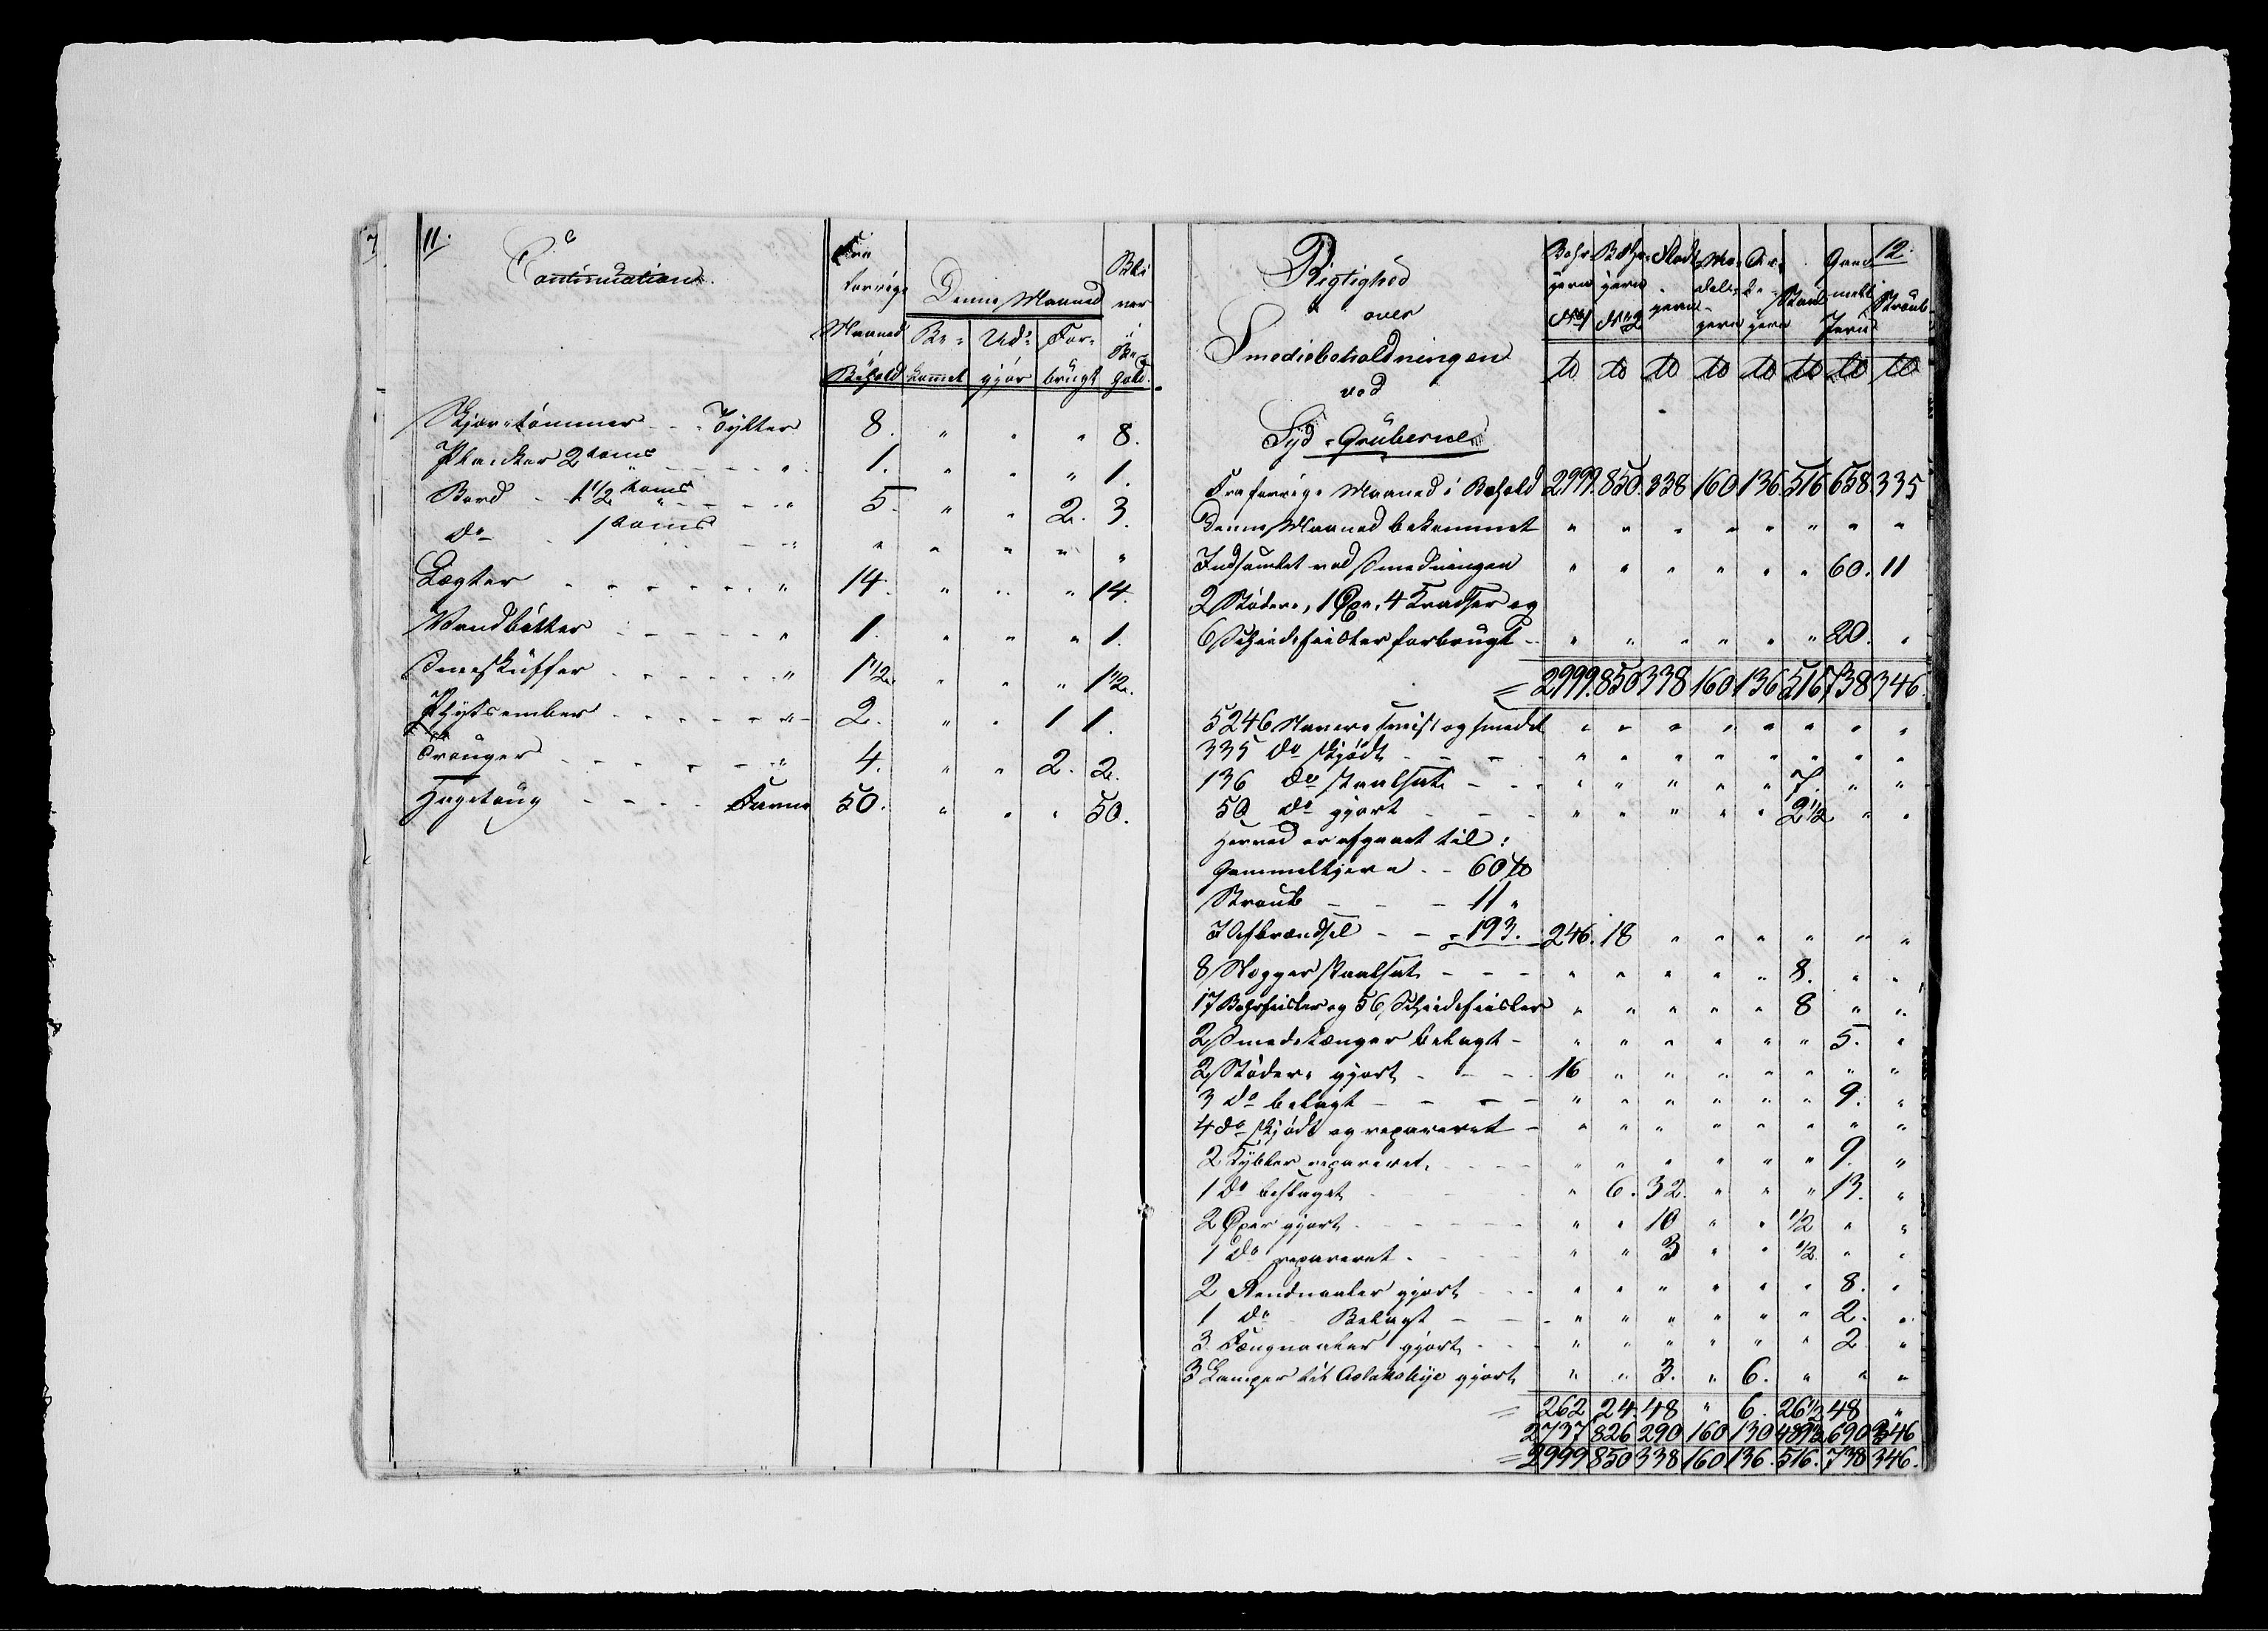 11.
Continuation.
Fra forrige Maaned i Behold
Denne Maaned
Be-kommet
Ud-gjør
For-brugt
Bliver i Behold.
Skjør-tømmer - - Tylter 8. " " " 8.
Planker 2 toms " - - - " 1. " " " 1.
Bord - 1 1/2 toms " - - - " 5. " " 2. 3.
do - 1 toms - - " " " " " "
Lægter - - - - - - " 14. " " " 14.
Vandbøtter - - - - - " 1. " " " 1.
Sneeskuffer - - - - - " 1 1/2. " " " 1 1/2.
- - - - - " 2. " " 1 1.
- - - - - " 4. " " 2. 2.
Hegetoug - - - - Favne 50. " " " 50.
12.
Rigtighed
over
Smediebeholdningen
ved
Syd-Gruberne
Bohr-jern No 1
Bohr-jern No 2
jern
jern
jern
Staal
Gammelt Jern
Skraub
℔ ℔ ℔ ℔ ℔ ℔ ℔ ℔
Fra forrige Maaned i Behold 2999. 850. 338 160. 136. 516 658. 335
Denne Maaned bekommet " " " " " " " "
Indsamlet ved Smedningen " " " " " " 60. 11
2 Stødere, 1 Øxe, 4 Kradser og
6 Scheidefeisler forbrugt - " " " " " " 20. "
= 2999. 850 338 160. 136 516 738 346.
5246 Navere hvist og smedet " " " " " " " "
335 do skjødt - - - - " " " " " " " "
136 do staalsat - - - " " " " " 7. " "
50 do gjort - - - " " " " " 2 1/2 " "
Herved er afgaaet til:
Gammeltjern - - 60 ℔
Skraub - - - 11 "
I Afbrændsel - - - 193. 246. 18 " " " " " "
8 Plogger staalsat - - - " " " " " 8. " "
17 Bohrfeisler og 56 Scheidefeisler " " " " " 8 " "
2 Smedetænger belagt - " " " " " " 5. "
2 Stødere gjort - - - 16 " " " " " " "
3 do belagt - - - - " " " " " " 9. "
4 do skjødt og repareret - " " " " " " " "
2 Kybler repareret - - - " " " " " " 9. "
1 do beslaget - - - " 6. 32. " " " 13. "
2 Øxer gjort - - - - " " 10 " " 1/2 " "
1 do repareret - - - " " 3 " " 1/2 " "
2 Rendnaaler gjort - - - " " " " " " 8. "
1 do Belagt - - - " " " " " " 2. "
3 Fængnaaler gjort - - - " " " " " " 2 "
3 Lamper til gjort " " 3. " 6. " " "
= 262 24. 48 " 6. 26 1/2 48 "
2737 826 290 160 130 489 1/2 690 346
= 2999 850 338 160. 136. 516. 738 346.